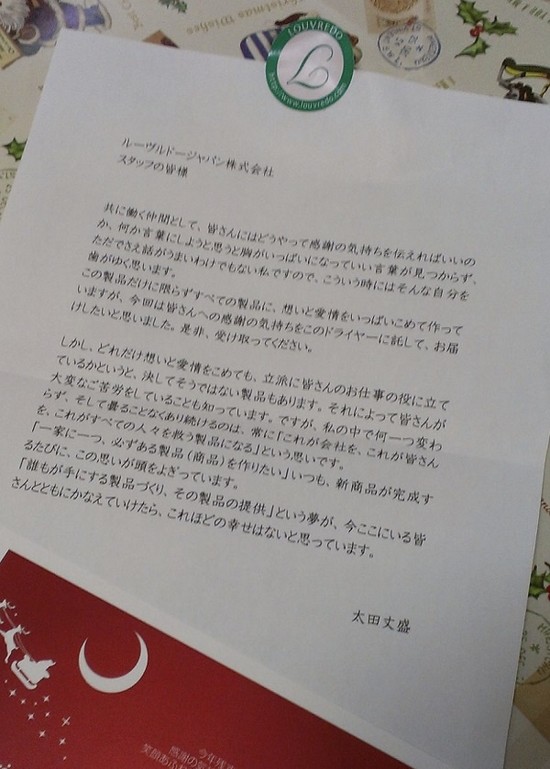 LOUVREDO
L
http://www.louvredo.com
ルーヴルドージャパン株式会社
スタッフの皆様
共に働く仲間として、皆さんにはどうやって感謝の気持ちを伝えればいいの
か、何か言葉にしようと思うと胸がいっぱいになっていい言葉が見つからず、
ただでさえ話がうまいわけでもない私ですので、こういう時にはそんな自分を
歯がゆく思います。
この製品だけに限らずすべての製品に、想いと愛情をいっぱいこめて作って
いますが、今回は皆さんへの感謝の気持ちをこのドライヤーに託して、お届
けしたいと思いました。是非、受け取ってください。
しかし、どれだけ想いと愛情をこめても、立派に皆さんのお仕事の役に立て
ているかというと、決してそうではない製品もあります。それによって皆さんが
大変なご苦労をしていることも知っています。ですが、私の中で何一つ変わ
らず、そして曇ることなくあり続けるのは、常に「これが会社を、これが皆さん
を、これがすべての人々を救う製品になる」という思いです。
「一家に一つ、必ずある製品(商品)を作りたい」いつも、新商品が完成す
るたびに、この思いが頭をよぎっています。
「誰もが手にする製品づくり、その製品の提供」という夢が、今ここにいる皆
さんとともにかなえていけたら、これほどの幸せはないと思っています。
太田丈盛
今年
感謝の
笑顔あふ